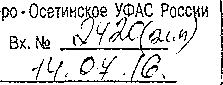 ро-Осетинское УФАС России
Вх. № 2420 (эл.п)
14.07.16.